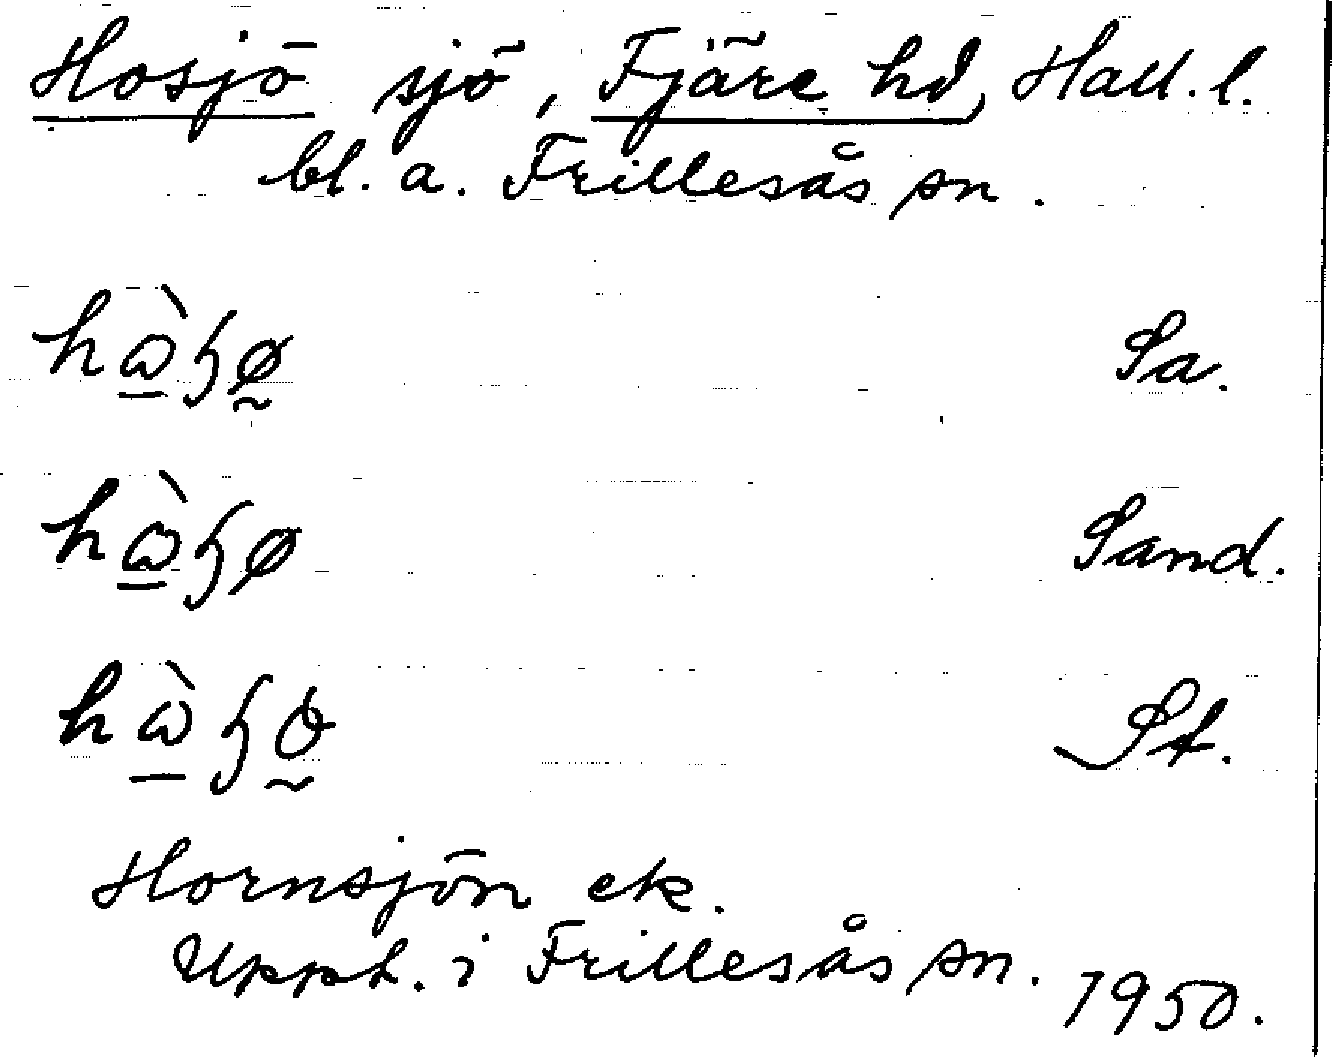 Hosjö sjö, Fjäre hd, Hall. l.
bl. a. Frillesås sn.
Sa.
Sand.
St.
Hornsjön ek.
Uppt. i Frillesås sn. 1950.